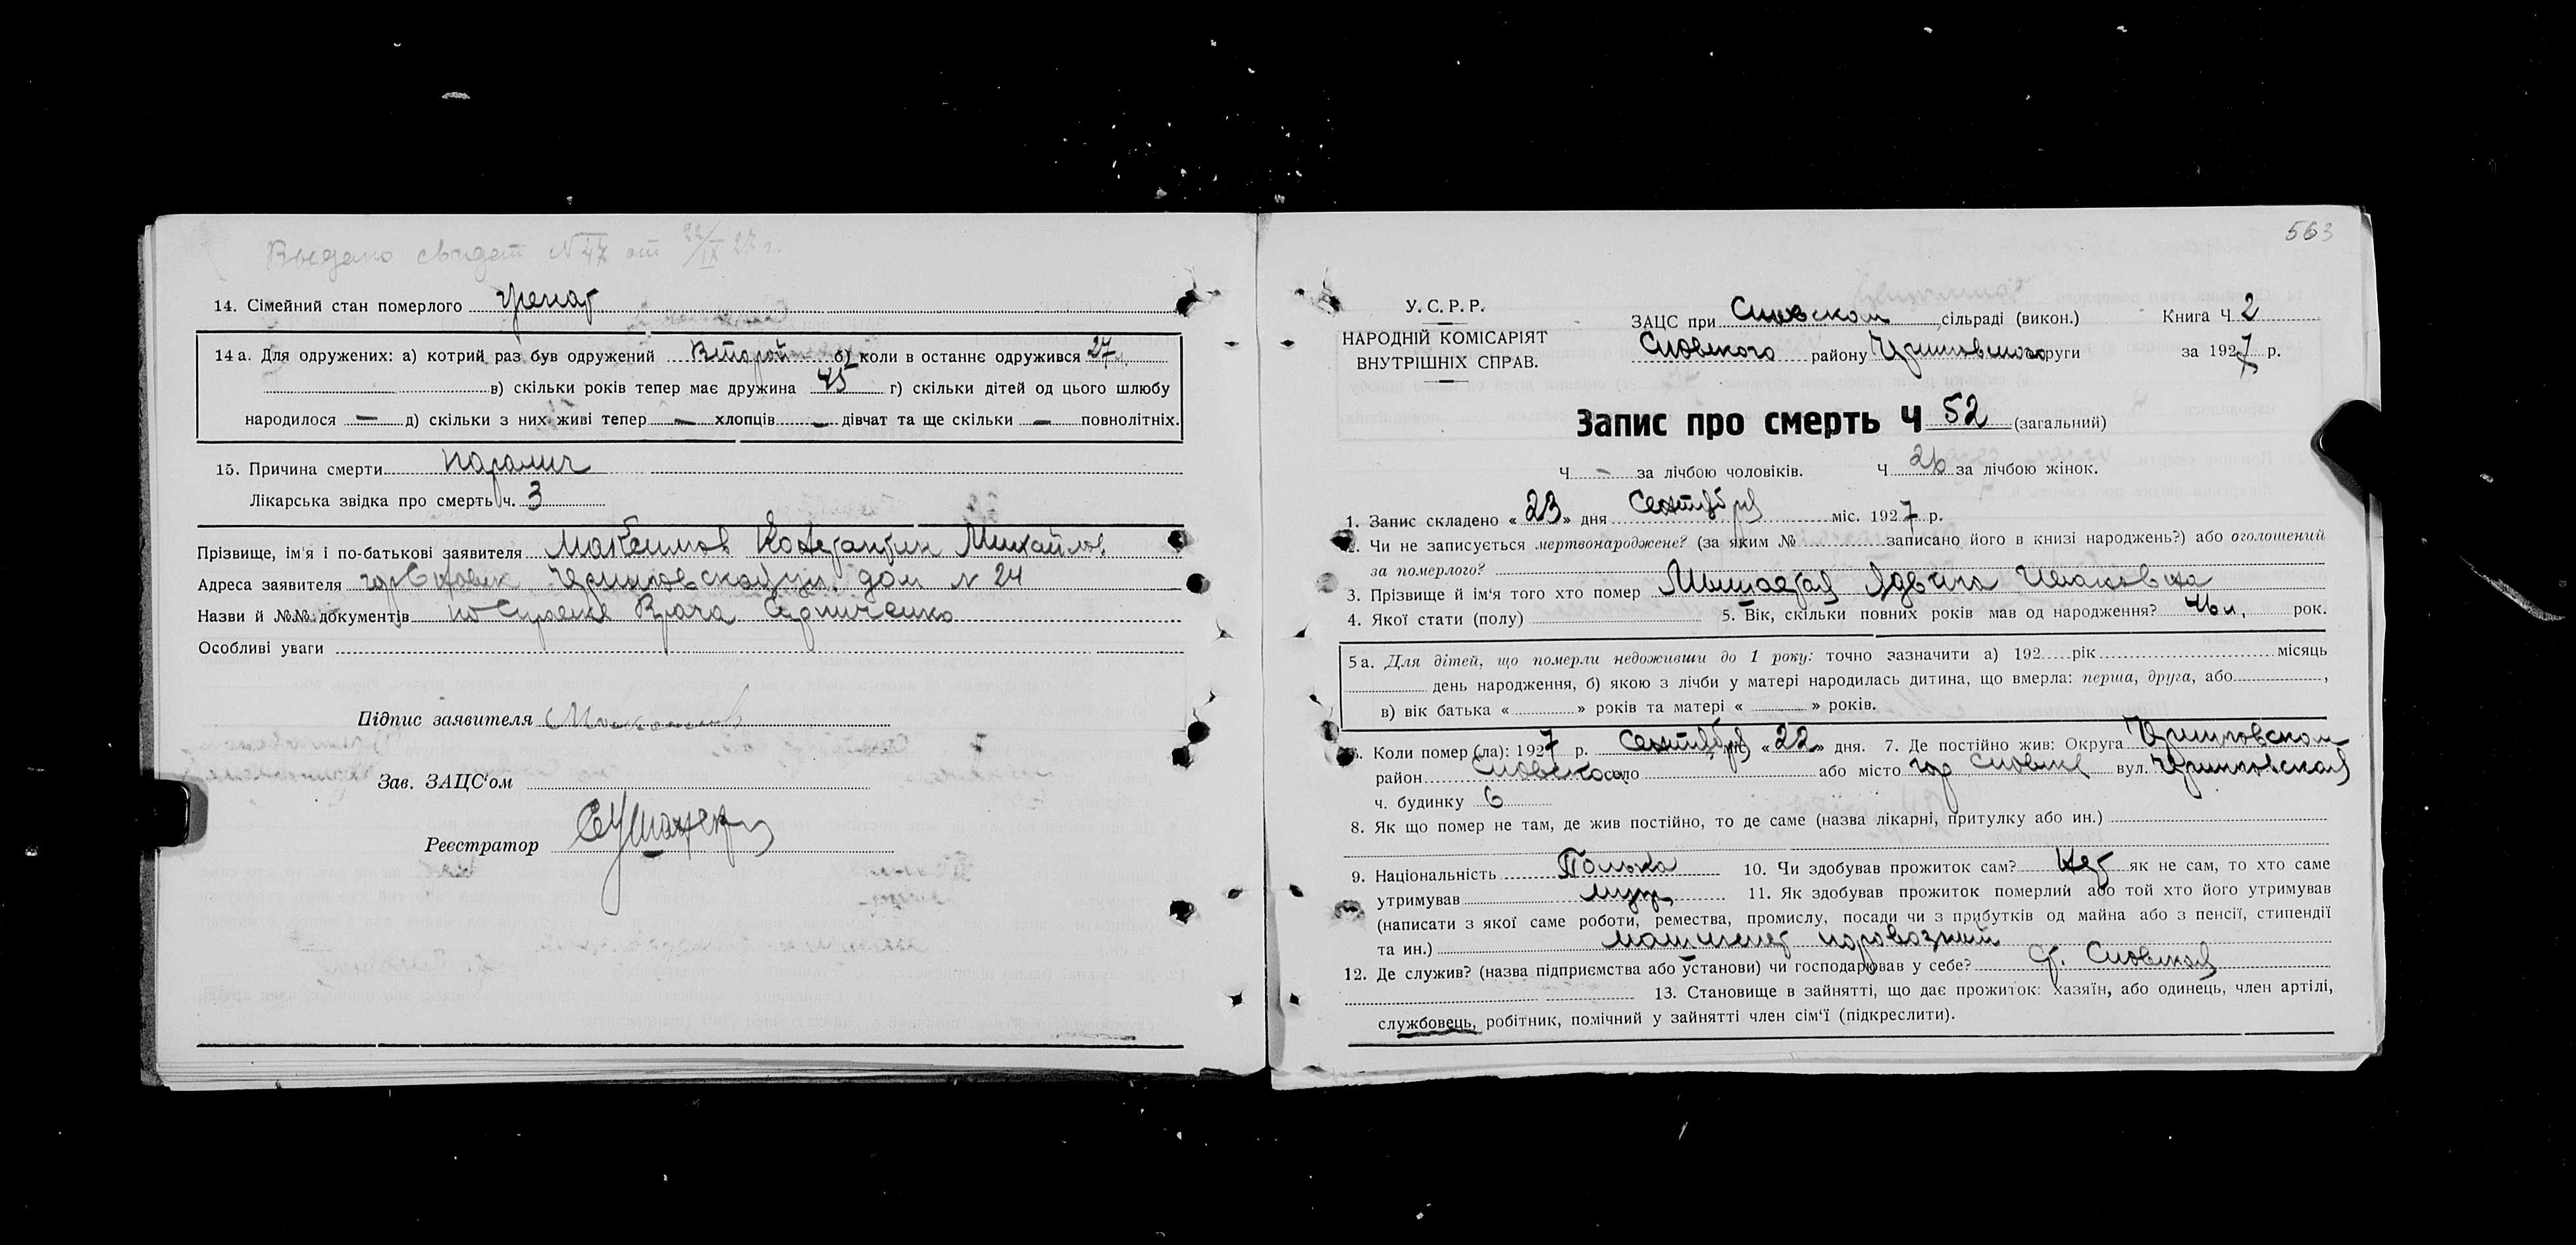 Выдано свидет №47 от 22/IX 27 г.
14. Сімейний стан померлого женат
14 а. Для одружених: а) котрий раз був одружений Второй б) коли в останнє одружився 27 г.
в) скільки років тепер має дружина 45 г) скільки дітей од цього шлюбу
народилося — д) скільки з них живі тепер — хлопців — дівчат та ще скільки — повнолітніх.
15. Причина смерти паралич
Лікарська звідка про смерть ч. 3
Прізвище, ім'я і по-батькові заявителя Максимов Константин Михайлов
Адреса заявителя гор Сновск Черниговская ул. дом № 24
Назви й №№ документів по справке Врача
Особливі уваги
Підпис заявителя
Зав. ЗАЦС'ом
Реєстратор
563
У. С. Р. Р.
НАРОДНІЙ КОМІСАРІЯТ
ВНУТРІШНІХ СПРАВ.
ЗАЦС при Сновском сільраді (викон.) Книга Ч 2
Сновского району Черниговского округи за 1927 р.
Запис про смерть Ч 52 (загальний)
Ч - за лічбою чоловіків. Ч 26 за лічбою жінок.
1. Запис складено « 23 » дня Сентября міс. 1927 р.
2. Чи не записується мертвонароджене? (за яким № записано його в книзі народжень?) або оголошений
за померлого?
3. Прізвище й ім'я того хто помер Ядвига
4. Якої стати (полу) 5. Вік, скільки повних років мав од народження? 46 л. рок.
5 а. Для дітей, що померли недоживши до 1 року: точно зазначити а) 192 рік місяць
день народження, б) якою з лічби у матері народилась дитина, що вмерла: перша, друга, або ,
в) вік батька « » років та матері « » років.
6. Коли помер (ла): 1927 р. Сентября міс. « 22 » дня. 7. Де постійно жив: Округа Черниговском
район Сновского село або місто гор Сновске вул. Черниговская
ч. будинку 6
8. Як що помер не там, де жив постійно, то де саме (назва лікарні, притулку або ин.)
9. Національність Полька 10. Чи здобував прожиток сам? Нет як не сам, то хто саме
утримував муж 11. Як здобував прожиток померлий або той хто його утримував
(написати з якої саме роботи, ремества, промислу, посади чи з прибутків од майна або з пенсії, стипендії
та ин.) машинист паровозний
12. Де служив? (назва підприємства або установи) чи господарював у себе? ст. Сновская
13. Становище в зайнятті, що дає прожиток: хазяїн, або одинець, член артілі,
службовець, робітник, помічний у зайнятті член сім'ї (підкреслити).